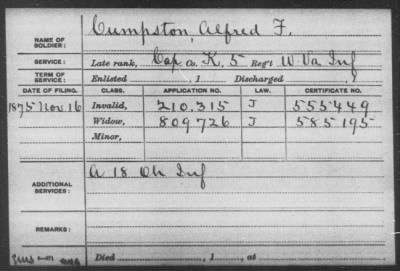 NAME OF SOLDIER: Cumpston, Alfred F.
SERVICE: Late rank, Cap Co. K, 5 Reg't W. Va Inf
TERM OF SERVICE: Enlisted , 1 Discharged , 1
DATE OF FILING. CLASS. APPLICATION NO. LAW. CERTIFICATE NO.
1875 Nov 16 Invalid, 210.315 J 555449
Widow, 809726 J 585195
Minor,
ADDITIONAL SERVICES: A 18 Oh Inf
REMARKS:
Died , 1 , at